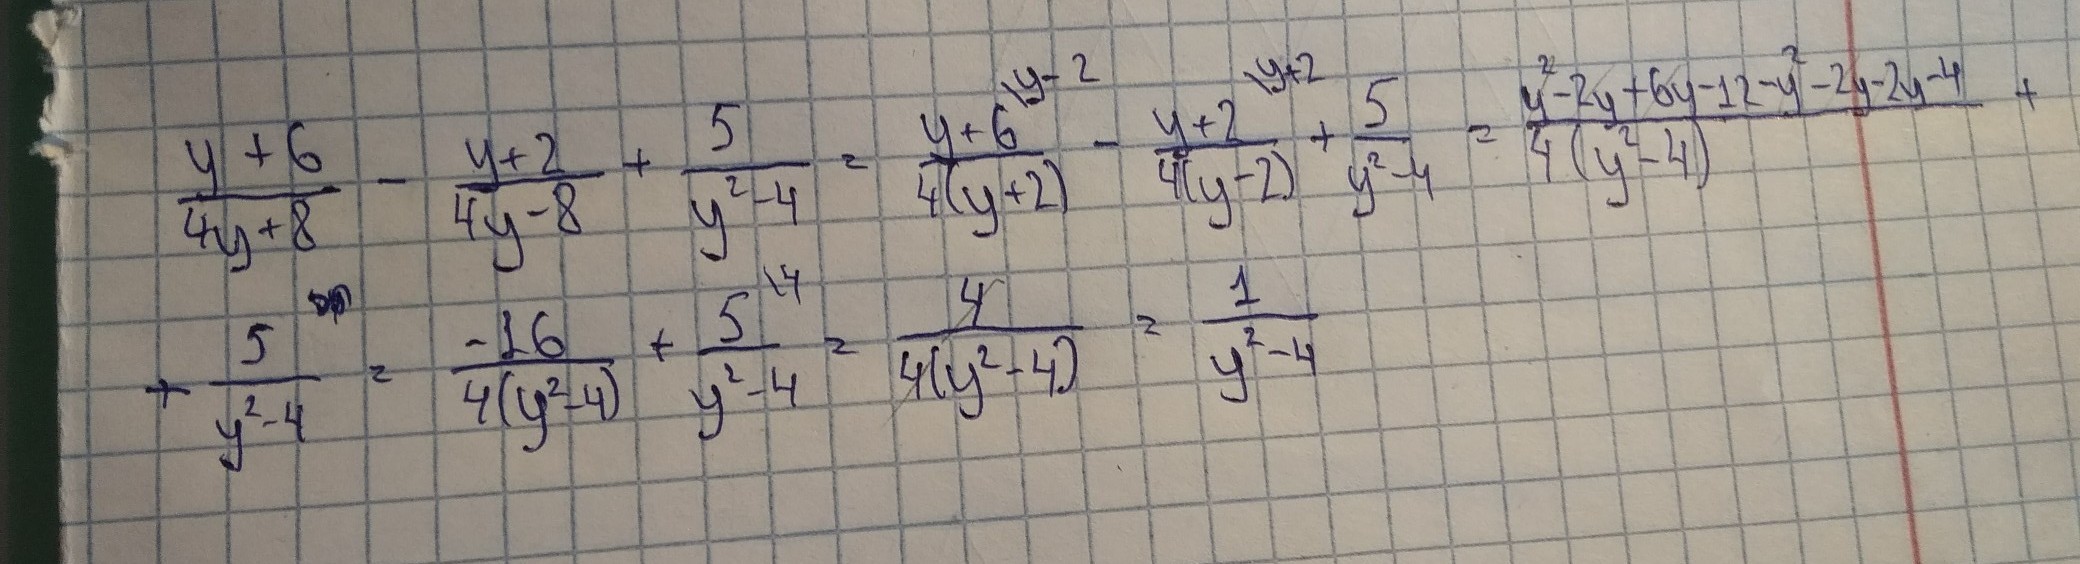 (y+6)/(4y+8) - (y+2)/(4y-8) + 5/(y²-4) = (y+6)/(4(y+2)) \y-2 - (y+2)/(4(y-2)) \y+2 + 5/(y²-4) = (y²-2y+6y-12-y²-2y-2y-4)/(4(y²-4)) +
+ 5/(y²-4) = -16/(4(y²-4)) + 5/(y²-4) \4 = 4/(4(y²-4)) = 1/(y²-4)